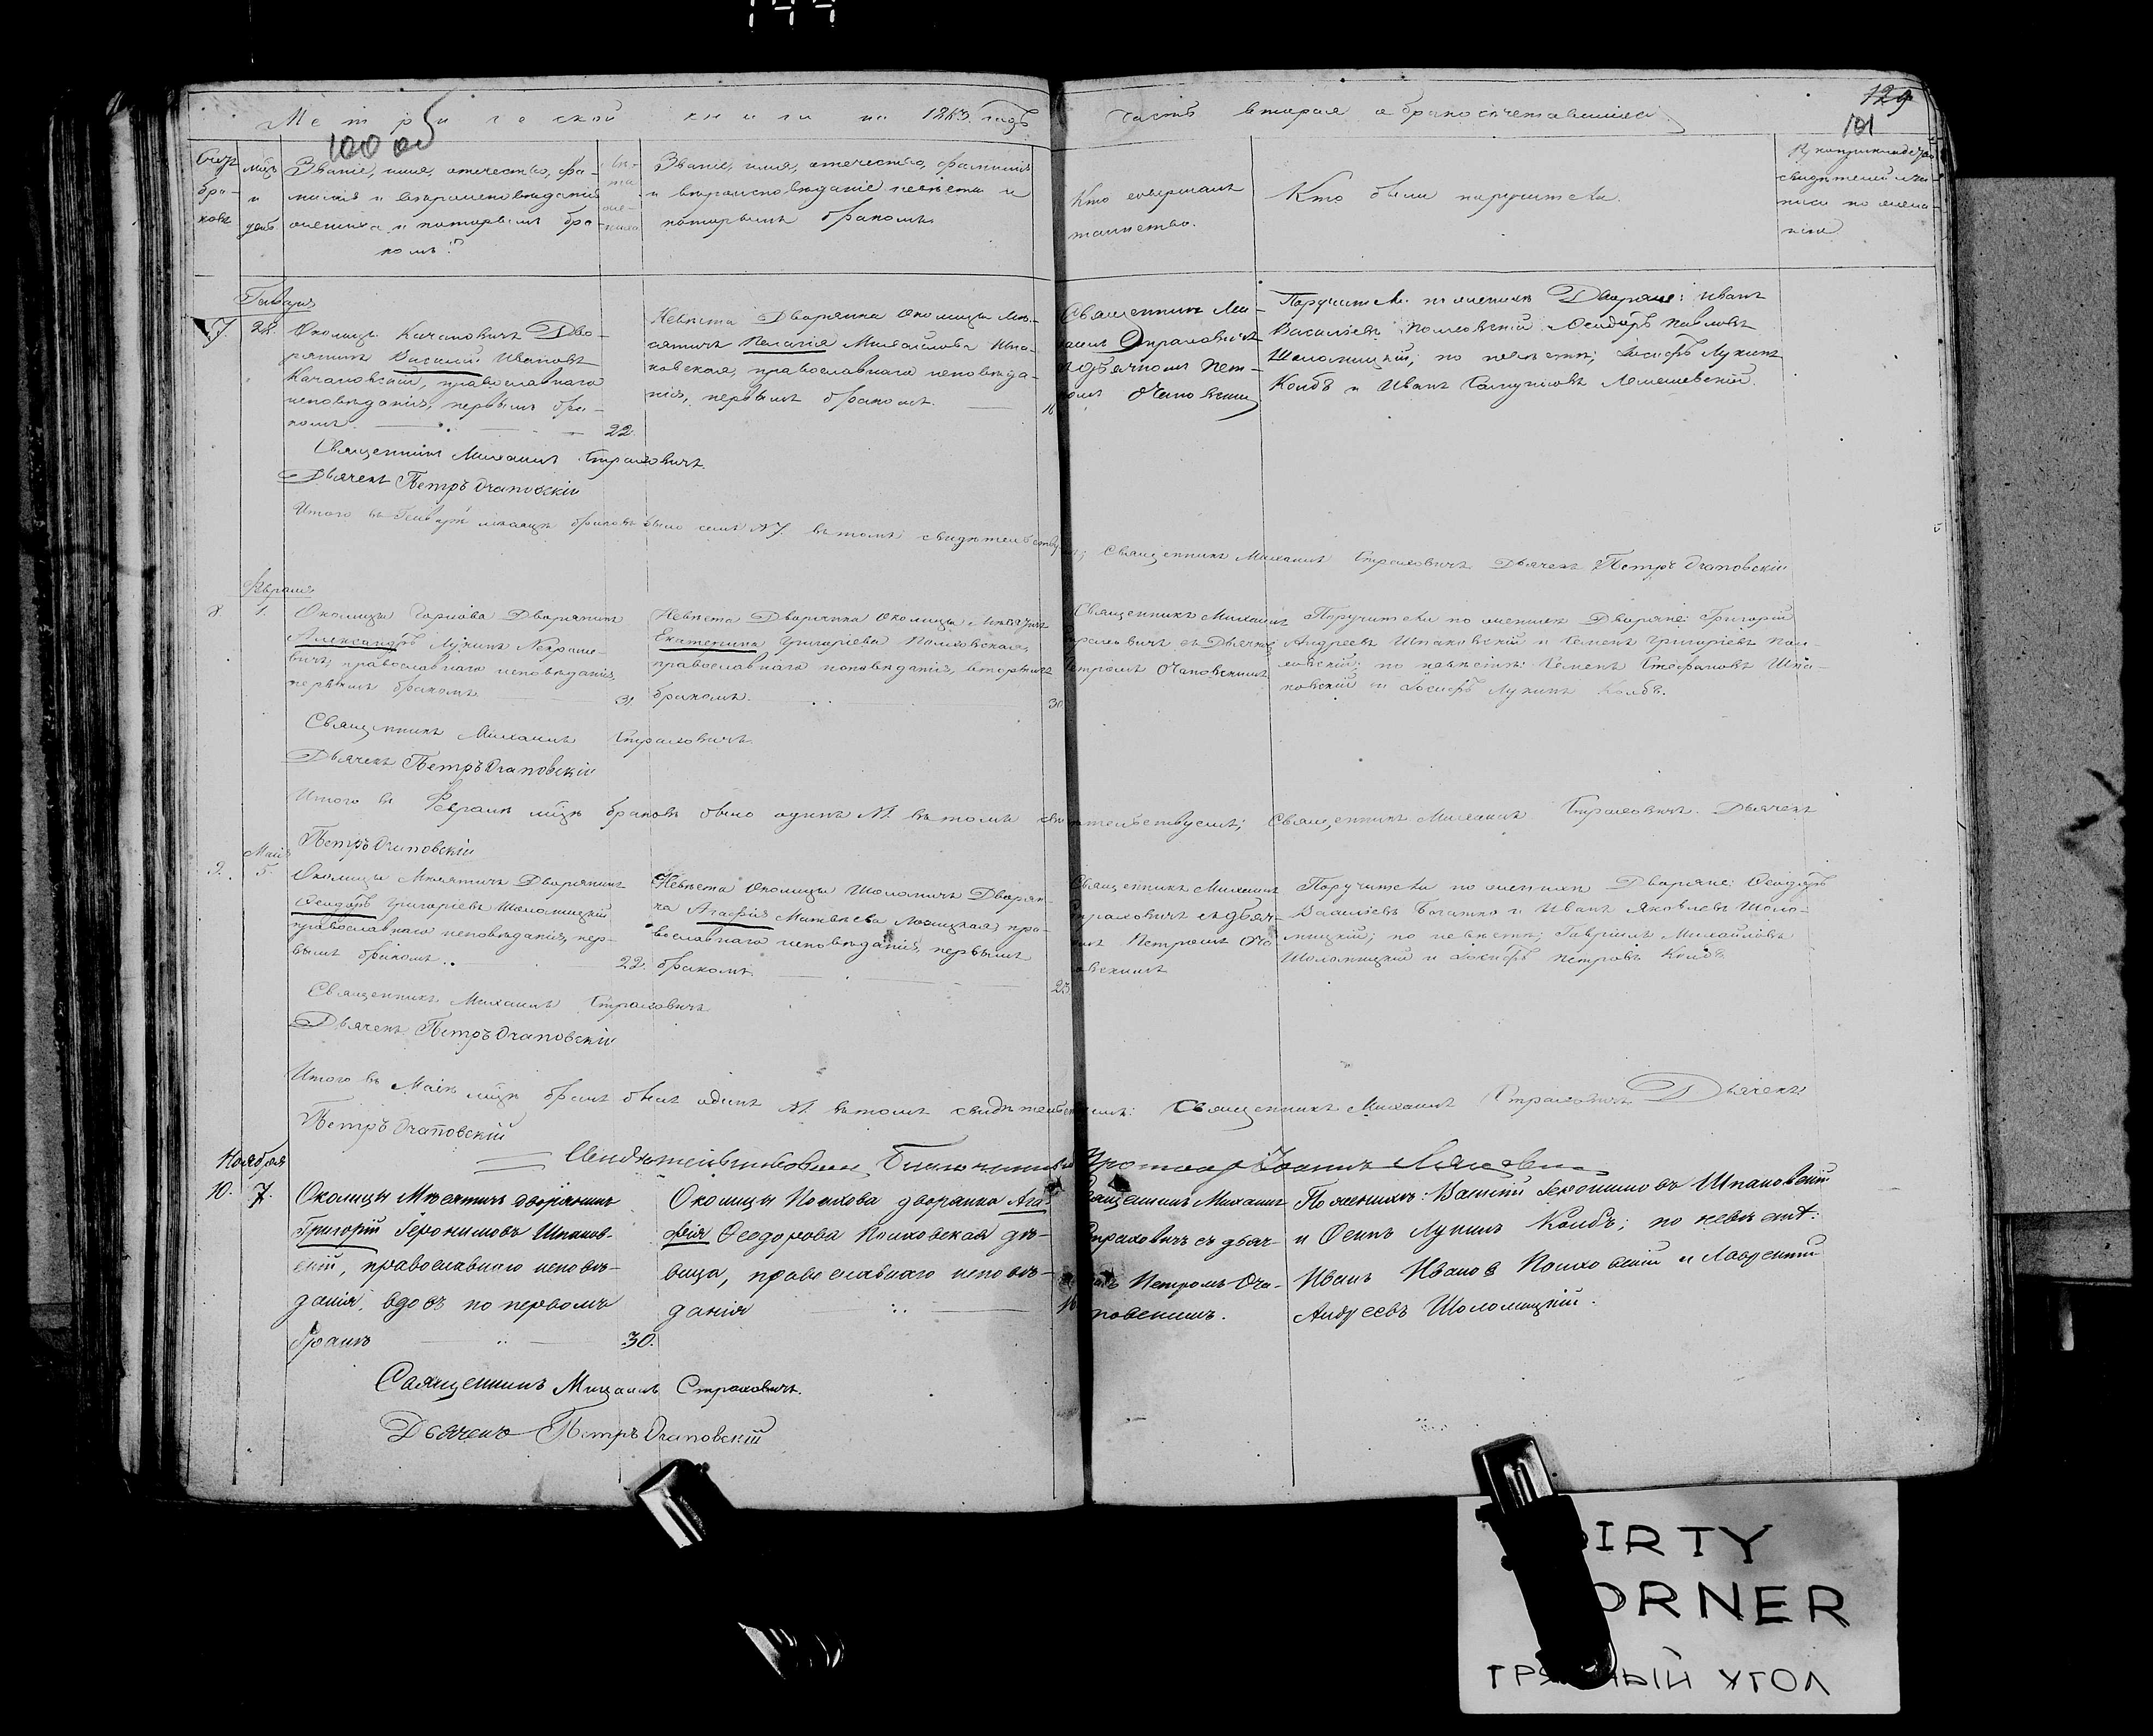 Метрической книги на 1863 годъ
часть вторая о бракосочетавшихся
129
101
100 об
Званіе, имя, отечество, фа-
милія и вѣроисповѣданіе
жениха и которымъ бра-
комъ?
Званіе, имя, отечество, фамилія
и вѣроисповѣданіе невѣсты и
которымъ бракомъ.
Кто совершалъ
таинство.
Кто были поручители.
Генваря
7. 22.
Околицы Качановичъ Дво-
рянинъ Василій Ивановъ
Качановскій, православнаго
исповѣданія, первымъ бра-
комъ. 22.
Невѣста Дворянка околицы Мле-
сятичъ Пелагія Михайлова Шпа-
ковская, православнаго исповѣда-
нія, первымъ бракомъ.
Священникъ Ми-
хаилъ Страховичъ
съ дьячкомъ Пет-
ромъ Очаповским
Поручители по женихѣ Дворяне: Иванъ
Васильевъ Полховскій Ѳеодоръ Павловъ
Шоломицкій; по невѣстѣ; Іосифъ Лукинъ
Колбъ и Иванъ Лемешевскій.
Священникъ Михаилъ Страховичъ.
Дьячекъ Петръ Очаповскій
Итого въ Генварѣ мѣсяцѣ браковъ было семь №7. въ томъ свидѣтельствуемъ; Священникъ Михаилъ Страховичъ Дьячекъ Петръ Очаповскій
Февраля
8 1.
Околицы Дворянинъ
Александръ Лукинъ Некраше-
вичъ, православнаго исповѣданія,
первымъ бракомъ 31.
Невѣста Дворянка околицы
Екатерина Григоріева Полховская,
православнаго исповѣданія, вторымъ
бракомъ. 30.
Священникъ Михаилъ
Страховичъ съ Дьячкомъ
Петромъ Очаповскимъ
Поручители по женихѣ Дворяне: Григорій
Андреевъ Шпаковскій и Семенъ Григоріевъ Пол-
ховскій; по невѣстѣ: Семенъ Стефановъ Шпа-
ковскій и Іосифъ Лукинъ Колбъ.
Священникъ Михаилъ Страховичъ.
Дьячекъ Петръ Очаповскій
Итого въ Февралѣ мѣсяцѣ браковъ было одинъ №1. въ томъ свидѣтельствуемъ; Священникъ Михаилъ Страховичъ. Дьячекъ
Петръ Очаповскій
Маія
9. 5.
Околицы Млесятичъ Дворянинъ
Ѳеодоръ Григоріевъ Шоломицкій
православнаго исповѣданія, пер-
вымъ бракомъ. 22.
Невѣста Околицы Шоломичъ Дворян-
ка Агафія Матвѣева Лозицкая, пра-
вославнаго исповѣданія, первымъ
бракомъ. 23
Священникъ Михаилъ
Страховичъ съ дьяч-
комъ Петромъ Оча-
повскимъ
Поручители по женихѣ Дворяне: Ѳеодоръ
Васильевъ Богатко и Иванъ Яковлевъ Шоло-
мицкій; по невѣстѣ; Гавріилъ Михайловъ
Шоломицкій и Іосифъ Петровъ Колбъ.
Священникъ Михаилъ Страховичъ
Дьячекъ Петръ Очаповскій
Итого въ Маіѣ мѣсяцѣ бракъ былъ одинъ №1. въ томъ свидѣтельствуемъ: Священникъ Михаилъ Страховичъ Дьячекъ
Петръ Очаповскій
Свидѣтельствовалъ Благочинный
Ноября
10. 7.
Околицы Млесятичъ дворянинъ
Григорій Іеронимовъ Шпаков-
скій, православнаго исповѣ-
данія, вдовъ по первомъ
бракѣ 30.
Околицы Полхова дворянка Ага-
ѳія Ѳеодорова Полховская дѣ-
вица, православнаго исповѣ-
данія
Священникъ Михаилъ
Страховичъ съ дьяч-
комъ Петромъ Оча-
повскимъ.
По женихѣ: Василій Іеронимовъ Шпаковскій
и Осипъ Лукинъ Колбъ; по невѣстѣ:
Иванъ Ивановъ Полховскій и Лаврентій
Андреевъ Шоломицкій.
Священникъ Михаилъ Страховичъ.
Дьячекъ Петръ Очаповскій
DIRTY
CORNER
ГРЯЗНЫЙ УГОЛ